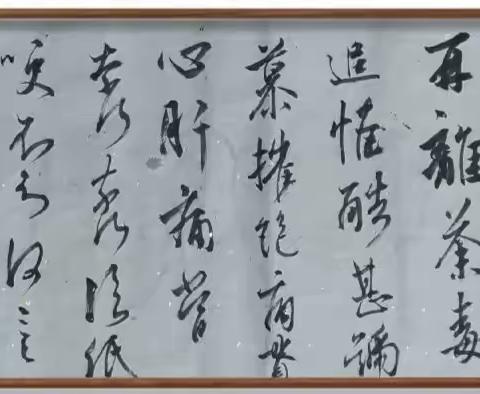 再離荼毒
追惟酷甚號
慕摧絶痛貫
心肝痛當
奈何奈何臨紙
哽不知何言